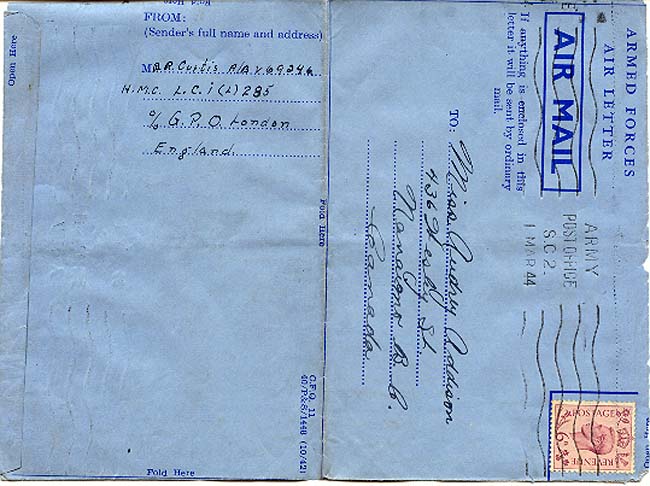 Open Here
Fold Here
FROM:
(Sender's full name and address)
M R.R. Curtis A/AB V69346
H.M.C. L.C.I(L) 285
c/o G.P.O. London
England
Fold Here
C.F.Q. 11
40/P.&S/1448 (10/42)
Fold Here
ARMED FORCES
AIR LETTER
AIR MAIL
If anything is enclosed in this
letter it will be sent by ordinary
mail.
ARMY
POST OFFICE
S.C.2.
1 MAR 44
TO: Miss Audrey Addison
436 Wesley St
Nanaimo B.C.
Canada
POSTAGE
6D
REVENUE